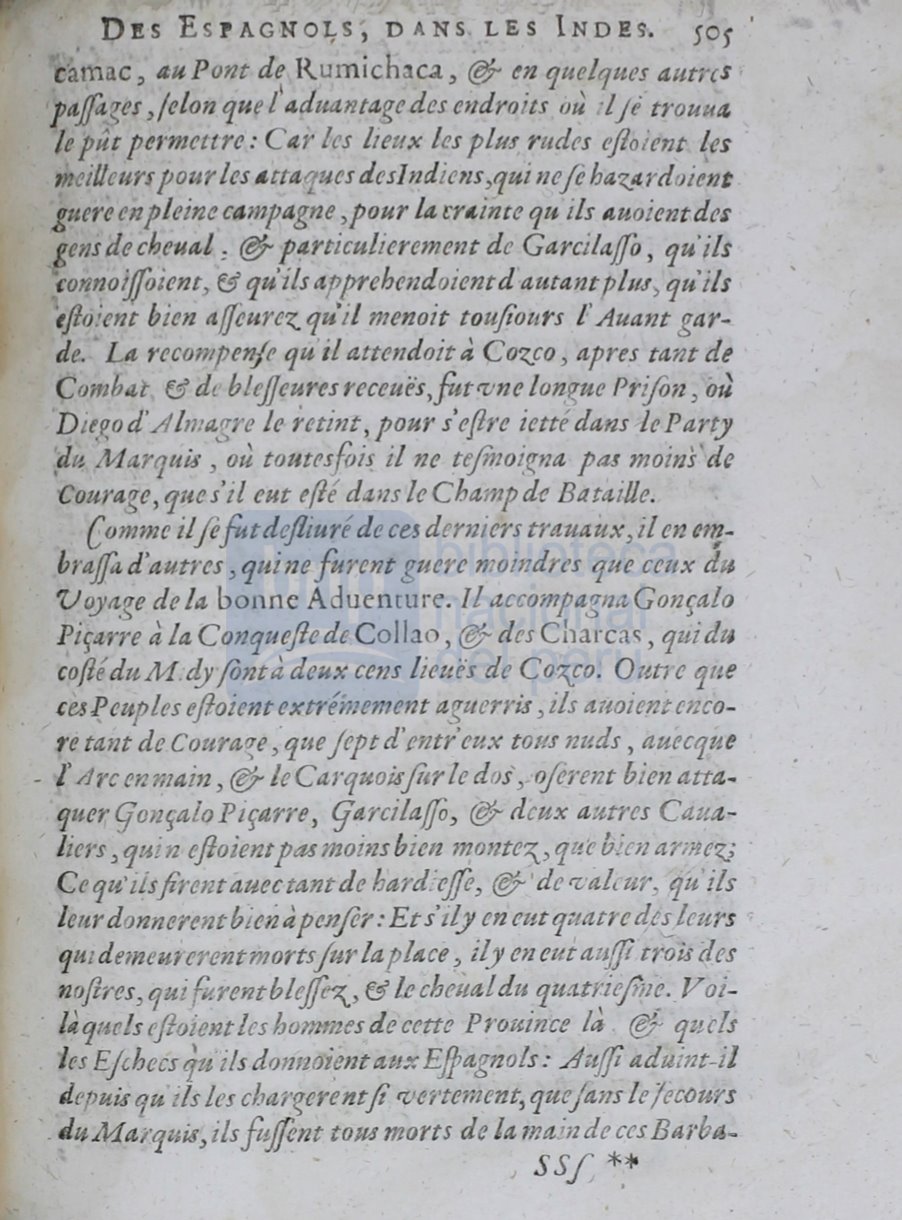 DES ESPAGNOLS, DANS LES INDES. 505
camac, au Pont de Rumichaca, & en quelques autres
paſſages, ſelon que l'aduantage des endroits où il ſe trouua
le pût permettre: Car les lieux les plus rudes eſtoient les
meilleurs pour les attaques des Indiens, qui ne ſe hazardoient
guere en pleine campagne, pour la crainte qu'ils auoient des
gens de cheual; & particulierement de Garcilaſſo, qu'ils
connoiſſoient, & qu'ils apprehendoient d'autant plus, qu'ils
eſtoient bien aſſeurez qu'il menoit touſiours l'Auant gar-
de. La recompenſe qu'il attendoit à Cozco, apres tant de
Combat & de bleſſeures receuës, fut vne longue Priſon, où
Diego d'Almagre le retint, pour s'eſtre ietté dans le Party
du Marquis, où toutesfois il ne teſmoigna pas moins de
Courage, que s'il eut eſté dans le Champ de Bataille.
Comme il ſe fut deſliuré de ces derniers trauaux, il en em-
braſſa d'autres, qui ne furent guere moindres que ceux du
Voyage de la bonne Aduenture. Il accompagna Gonçalo
Piçarre à la Conqueſte de Collao, & des Charcas, qui du
coſté du M.dy ſont à deux cens lieuës de Cozco. Outre que
ces Peuples eſtoient extrémement aguerris, ils auoient enco-
re tant de Courage, que ſept d'entr'eux tous nuds, auecque
l'Arc en main, & le Carquois ſur le dos, oſerent bien atta-
quer Gonçalo Piçarre, Garcilaſſo, & deux autres Caua-
liers, qui n'eſtoient pas moins bien montez, que bien armez;
Ce qu'ils firent auec tant de hardieſſe, & de valeur, qu'ils
leur donnerent bien à penſer: Et s'il y en eut quatre des leurs
qui demeurerent morts ſur la place, il y en eut auſſi trois des
noſtres, qui furent bleſſez, & le cheual du quatrieſme. Voi-
là quels eſtoient les hommes de cette Prouince là & quels
les Eſchecs qu'ils donnoient aux Eſpagnols: Auſſi aduint-il
depuis qu'ils les chargerent ſi vertement, que ſans le ſecours
du Marquis, ils fuſſent tous morts de la main de ces Barba-
SSſ **
biblioteca
nacional
del perú